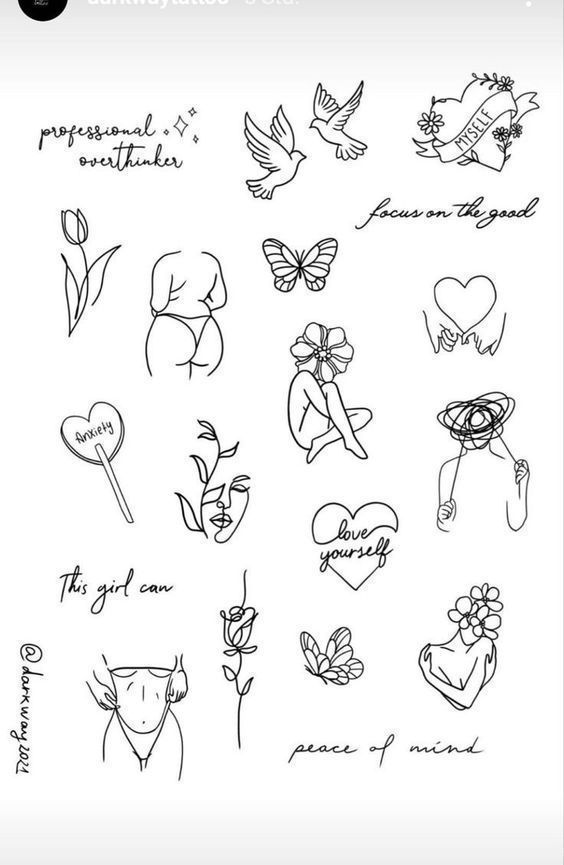 professional
overthinker
MYSELF
focus on the good
Anxiety
love
yourself
This girl can
@darkway2021
peace of mind